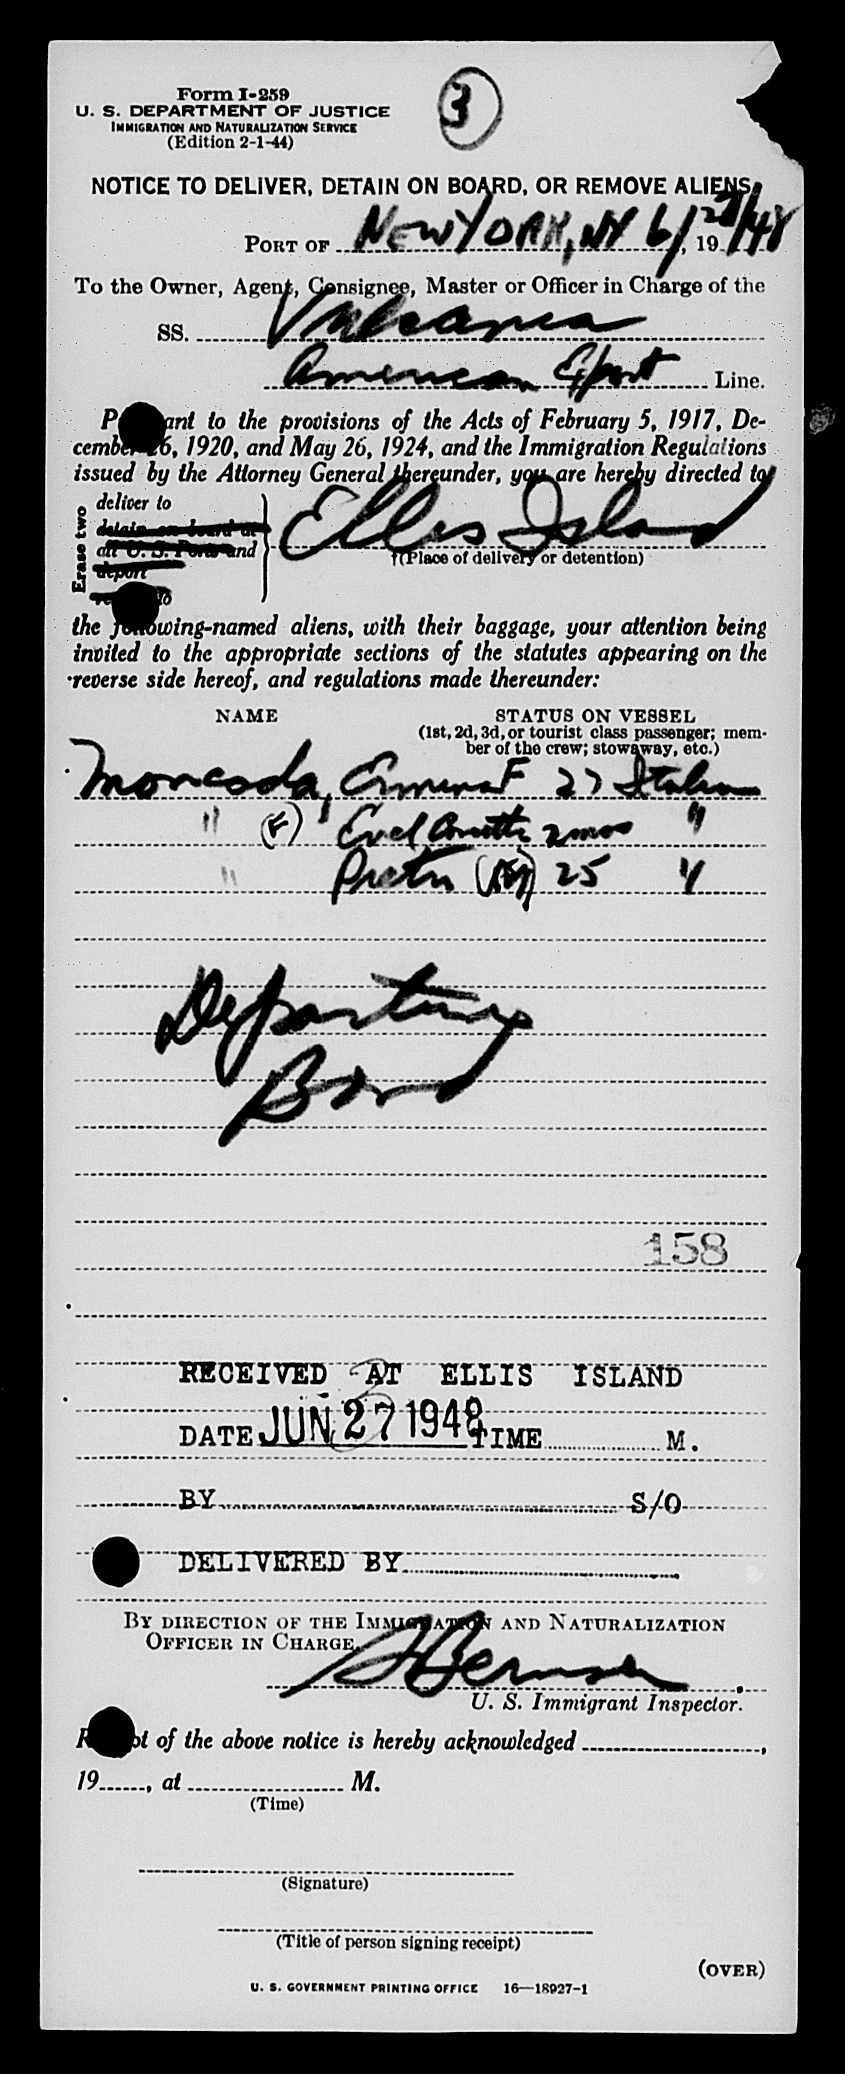 Form I-259
3
U. S. DEPARTMENT OF JUSTICE
IMMIGRATION AND NATURALIZATION SERVICE
(Edition 2-1-44)
NOTICE TO DELIVER, DETAIN ON BOARD, OR REMOVE ALIENS
PORT OF NEW YORK, NY 6/27/48, 19
To the Owner, Agent, Consignee, Master or Officer in Charge of the
SS. Vulcania
American Export Line.
P ant to the provisions of the Acts of February 5, 1917, De-
cember 26, 1920, and May 26, 1924, and the Immigration Regulations
issued by the Attorney General thereunder, you are hereby directed to
Erase two
deliver to
detain on board at
all U. S. Ports and
deport
Ellis Island
†(Place of delivery or detention)
the following-named aliens, with their baggage, your attention being
invited to the appropriate sections of the statutes appearing on the
reverse side hereof, and regulations made thereunder:
NAME STATUS ON VESSEL
(1st, 2d, 3d, or tourist class passenger; mem-
ber of the crew; stowaway, etc.)
F 27 Italian
" (F) 2 mos "
" (M) 25 "
Departure
Bond
158
RECEIVED AT ELLIS ISLAND
DATE JUN 27 1948 TIME M.
BY S/O
DELIVERED BY
BY DIRECTION OF THE IMMIGRATION AND NATURALIZATION
OFFICER IN CHARGE.
U. S. Immigrant Inspector.
R pt of the above notice is hereby acknowledged ,
19 , at M.
(Time)
(Signature)
(Title of person signing receipt)
(OVER)
U. S. GOVERNMENT PRINTING OFFICE 16—18927-1